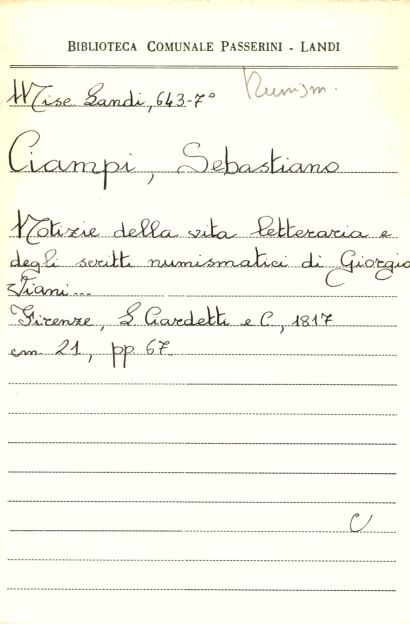 BIBLIOTECA COMUNALE PASSERINI - LANDI
Numism.
Misc Landi, 643-7°
Ciampi, Sebastiano
Notizie della vita letteraria e
degli scritti numismatici di Giorgio
Viani...
Firenze, L Ciardetti e C, 1817
cm. 21, pp 67.
C